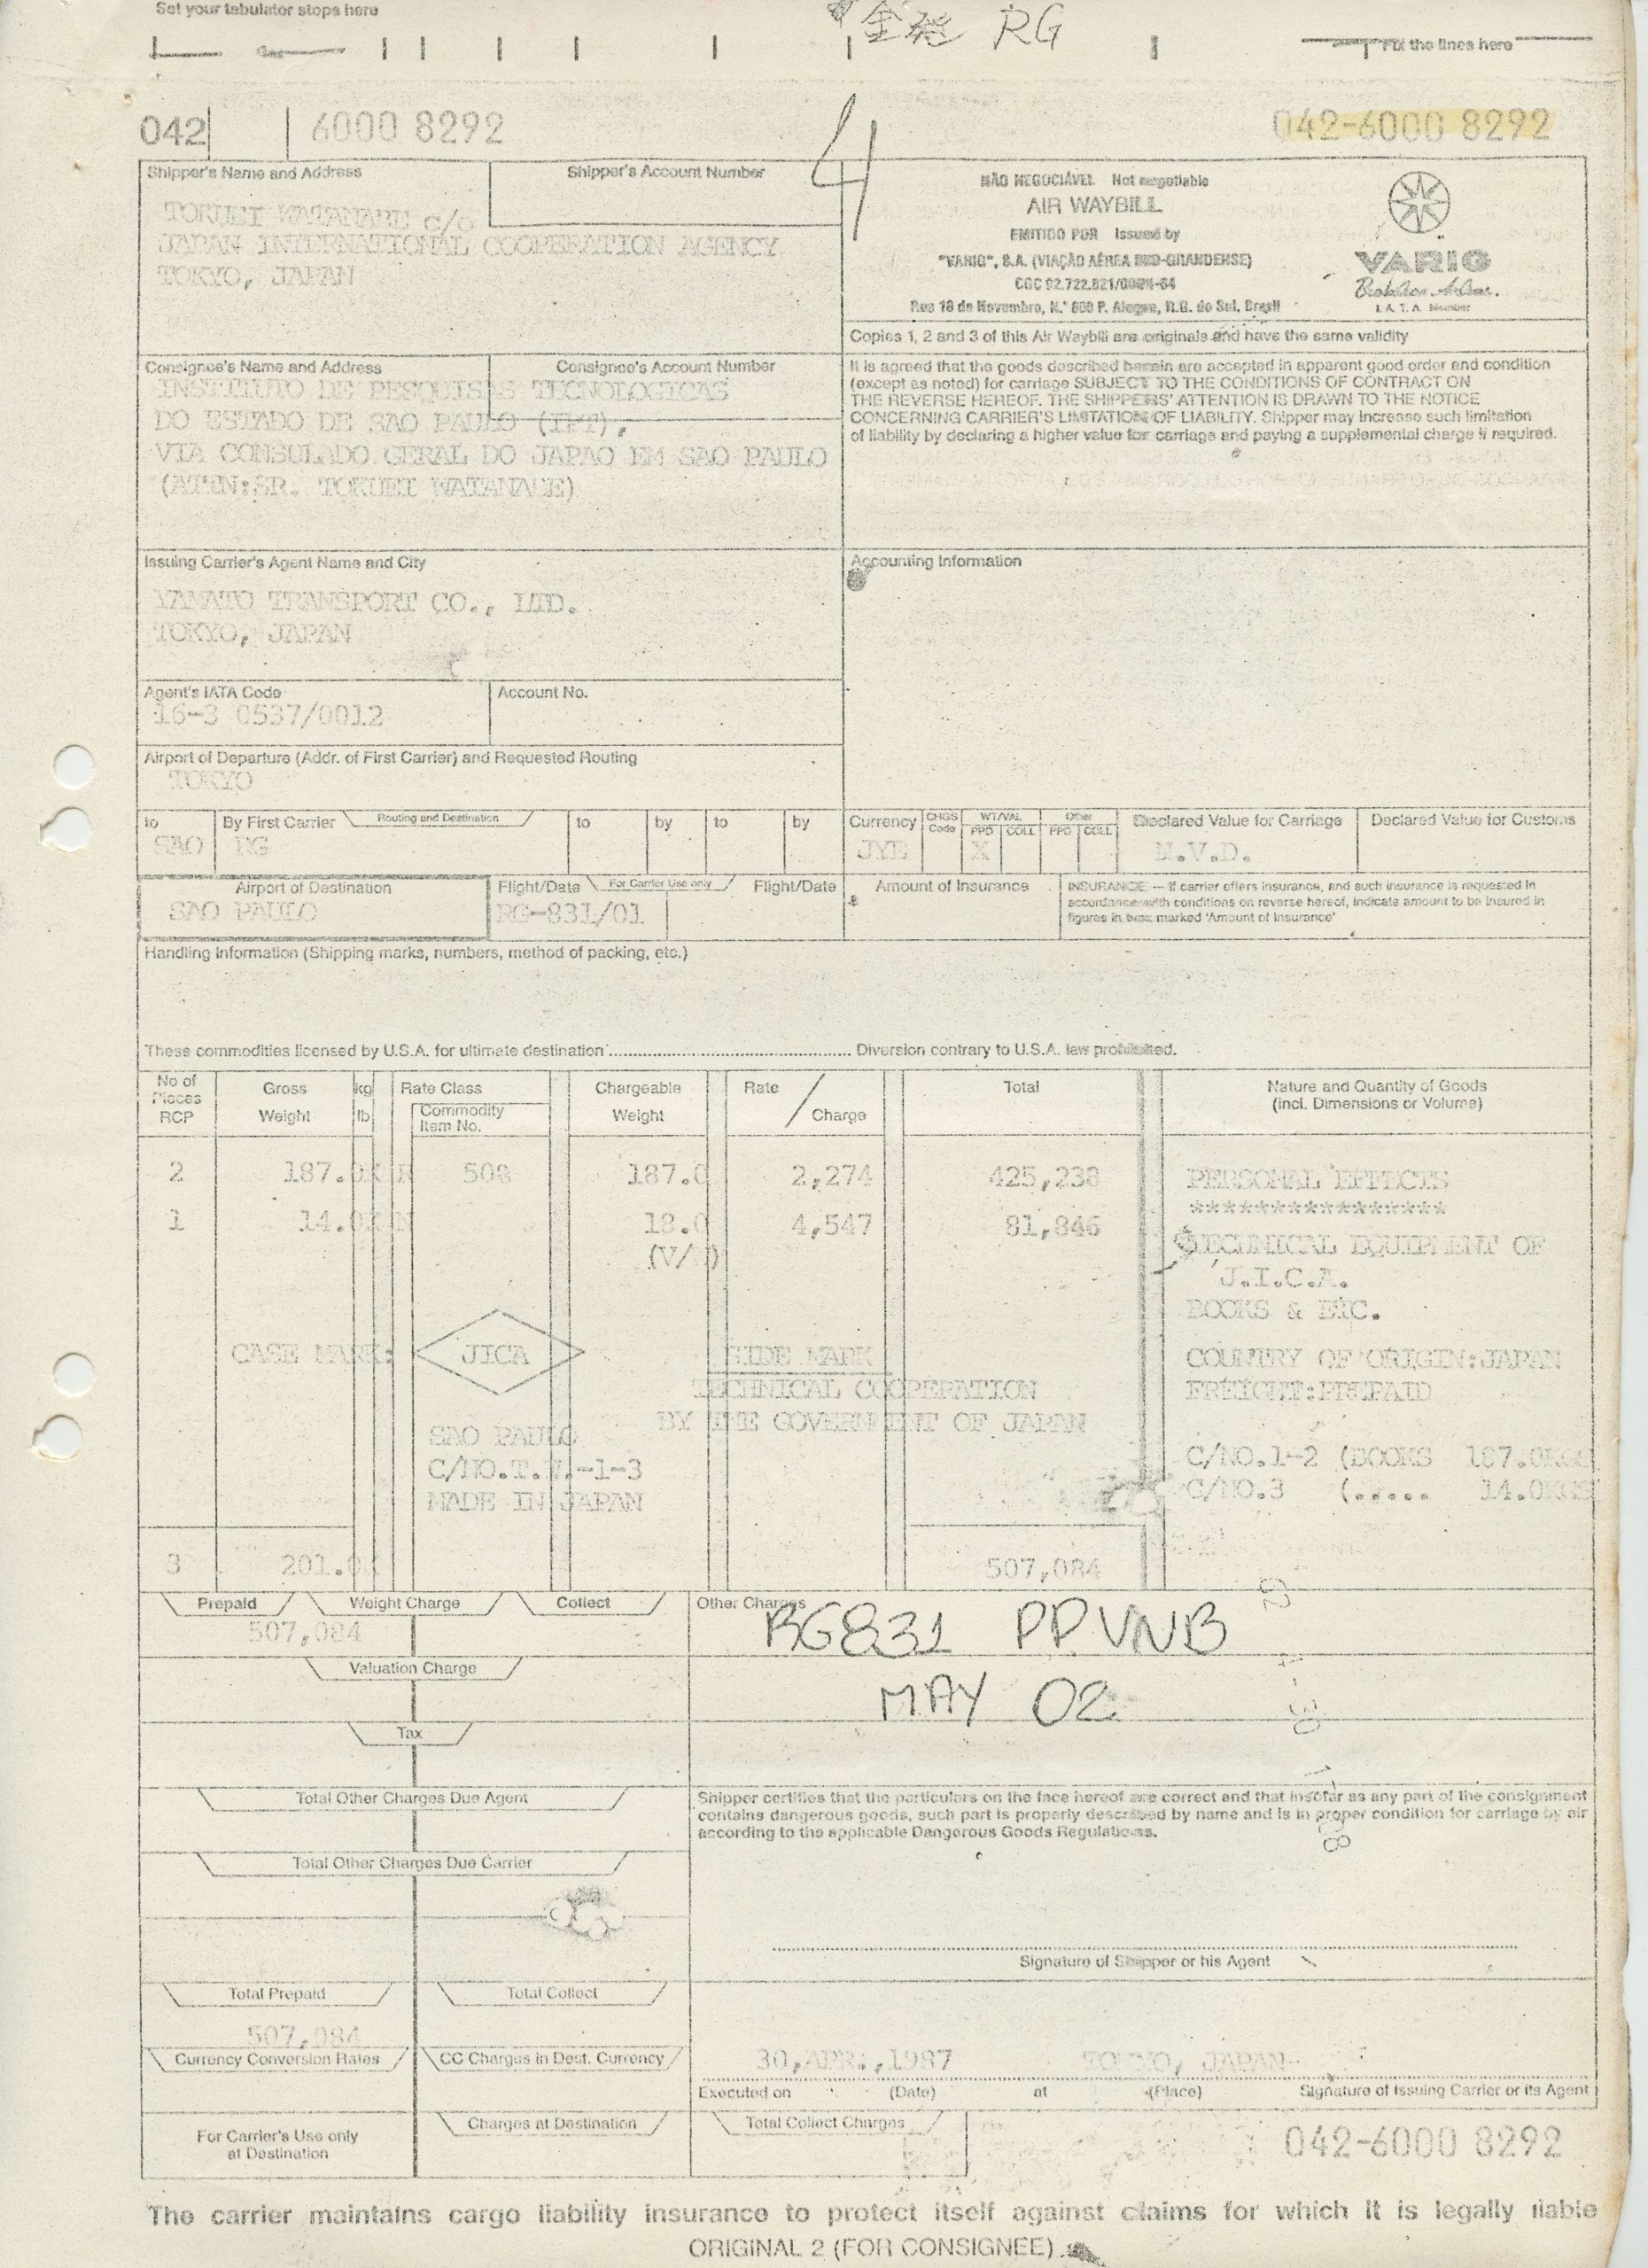 Set your tabulator stops here
RG
Fix the lines here
042 6000 8292
042-6000 8292
4
Shipper's Name and Address
Shipper's Account Number
TOKUEI WATANABE c/o
JAPAN INTERNATIONAL COOPERATION AGENCY
TOKYO, JAPAN
NÃO NEGOCIÁVEL Not negotiable
AIR WAYBILL
EMITIDO POR Issued by
"VARIG", S.A. (VIAÇÃO AÉREA RIO-GRANDENSE)
CGC 92.772.821/0001-64
Rua 18 de Novembro, N.º 800 P. Alegre, R.G. do Sul, Brasil
VARIG
Brazilian Airlines.
I. A. T. A. Member
Copies 1, 2 and 3 of this Air Waybill are originals and have the same validity
Consignee's Name and Address
Consignee's Account Number
INSTITUTO DE PESQUISAS TECNOLOGICAS
DO ESTADO DE SAO PAULO (IPT),
VIA CONSULADO GERAL DO JAPAO EM SAO PAULO
(ATTN:SR. TOKUEI WATANABE)
It is agreed that the goods described herein are accepted in apparent good order and condition
(except as noted) for carriage SUBJECT TO THE CONDITIONS OF CONTRACT ON
THE REVERSE HEREOF. THE SHIPPERS' ATTENTION IS DRAWN TO THE NOTICE
CONCERNING CARRIER'S LIMITATION OF LIABILITY. Shipper may increase such limitation
of liability by declaring a higher value for carriage and paying a supplemental charge if required.
Issuing Carrier's Agent Name and City
YAMATO TRANSPORT CO., LTD.
TOKYO, JAPAN
Accounting Information
Agent's IATA Code
Account No.
16-3 0537/0012
Airport of Departure (Addr. of First Carrier) and Requested Routing
TOKYO
to By First Carrier Routing and Destination to by to by
SAO RG
Currency CHGS Code WT/VAL PPD COLL Other PPD COLL Declared Value for Carriage Declared Value for Customs
JYE X N.V.D.
Airport of Destination
SAO PAULO
Flight/Date For Carrier Use only Flight/Date
RG-831/01
Amount of Insurance
INSURANCE — If carrier offers insurance, and such insurance is requested in
accordance with conditions on reverse hereof, indicate amount to be insured in
figures in box marked 'Amount of Insurance'
Handling Information (Shipping marks, numbers, method of packing, etc.)
These commodities licensed by U.S.A. for ultimate destination .......... Diversion contrary to U.S.A. law prohibited.
No of Pieces RCP
Gross Weight
kg lb
Rate Class
Commodity Item No.
Chargeable Weight
Rate / Charge
Total
Nature and Quantity of Goods
(incl. Dimensions or Volume)
2 187.0K R 508 187.0 2,274 425,238
1 14.0K N 18.0 4,547 81,846
PERSONAL EFFECTS
****************
TECHNICAL EQUIPMENT OF
J.I.C.A.
BOOKS & ETC.
COUNTRY OF ORIGIN:JAPAN
FREIGHT:PREPAID
C/NO.1-2 (BOOKS 187.0KGS
C/NO.3 (..... 14.0KGS
CASE MARK: JICA
SIDE MARK
TECHNICAL COOPERATION
BY THE GOVERNMENT OF JAPAN
SAO PAULO
C/NO.T.W.-1-3
MADE IN JAPAN
3 201.0K 507,084
Prepaid Weight Charge Collect
507,084
Other Charges
RG831 PPVNB
MAY 02
Valuation Charge
Tax
Total Other Charges Due Agent
Shipper certifies that the particulars on the face hereof are correct and that insofar as any part of the consignment
contains dangerous goods, such part is properly described by name and is in proper condition for carriage by air
according to the applicable Dangerous Goods Regulations.
Total Other Charges Due Carrier
Signature of Shipper or his Agent
Total Prepaid
Total Collect
507,084
Currency Conversion Rates
CC Charges in Dest. Currency
30,APR.,1987 TOKYO, JAPAN
Executed on (Date) at (Place) Signature of Issuing Carrier or its Agent
For Carrier's Use only
at Destination
Charges at Destination
Total Collect Charges
042-6000 8292
The carrier maintains cargo liability insurance to protect itself against claims for which it is legally liable
ORIGINAL 2 (FOR CONSIGNEE)